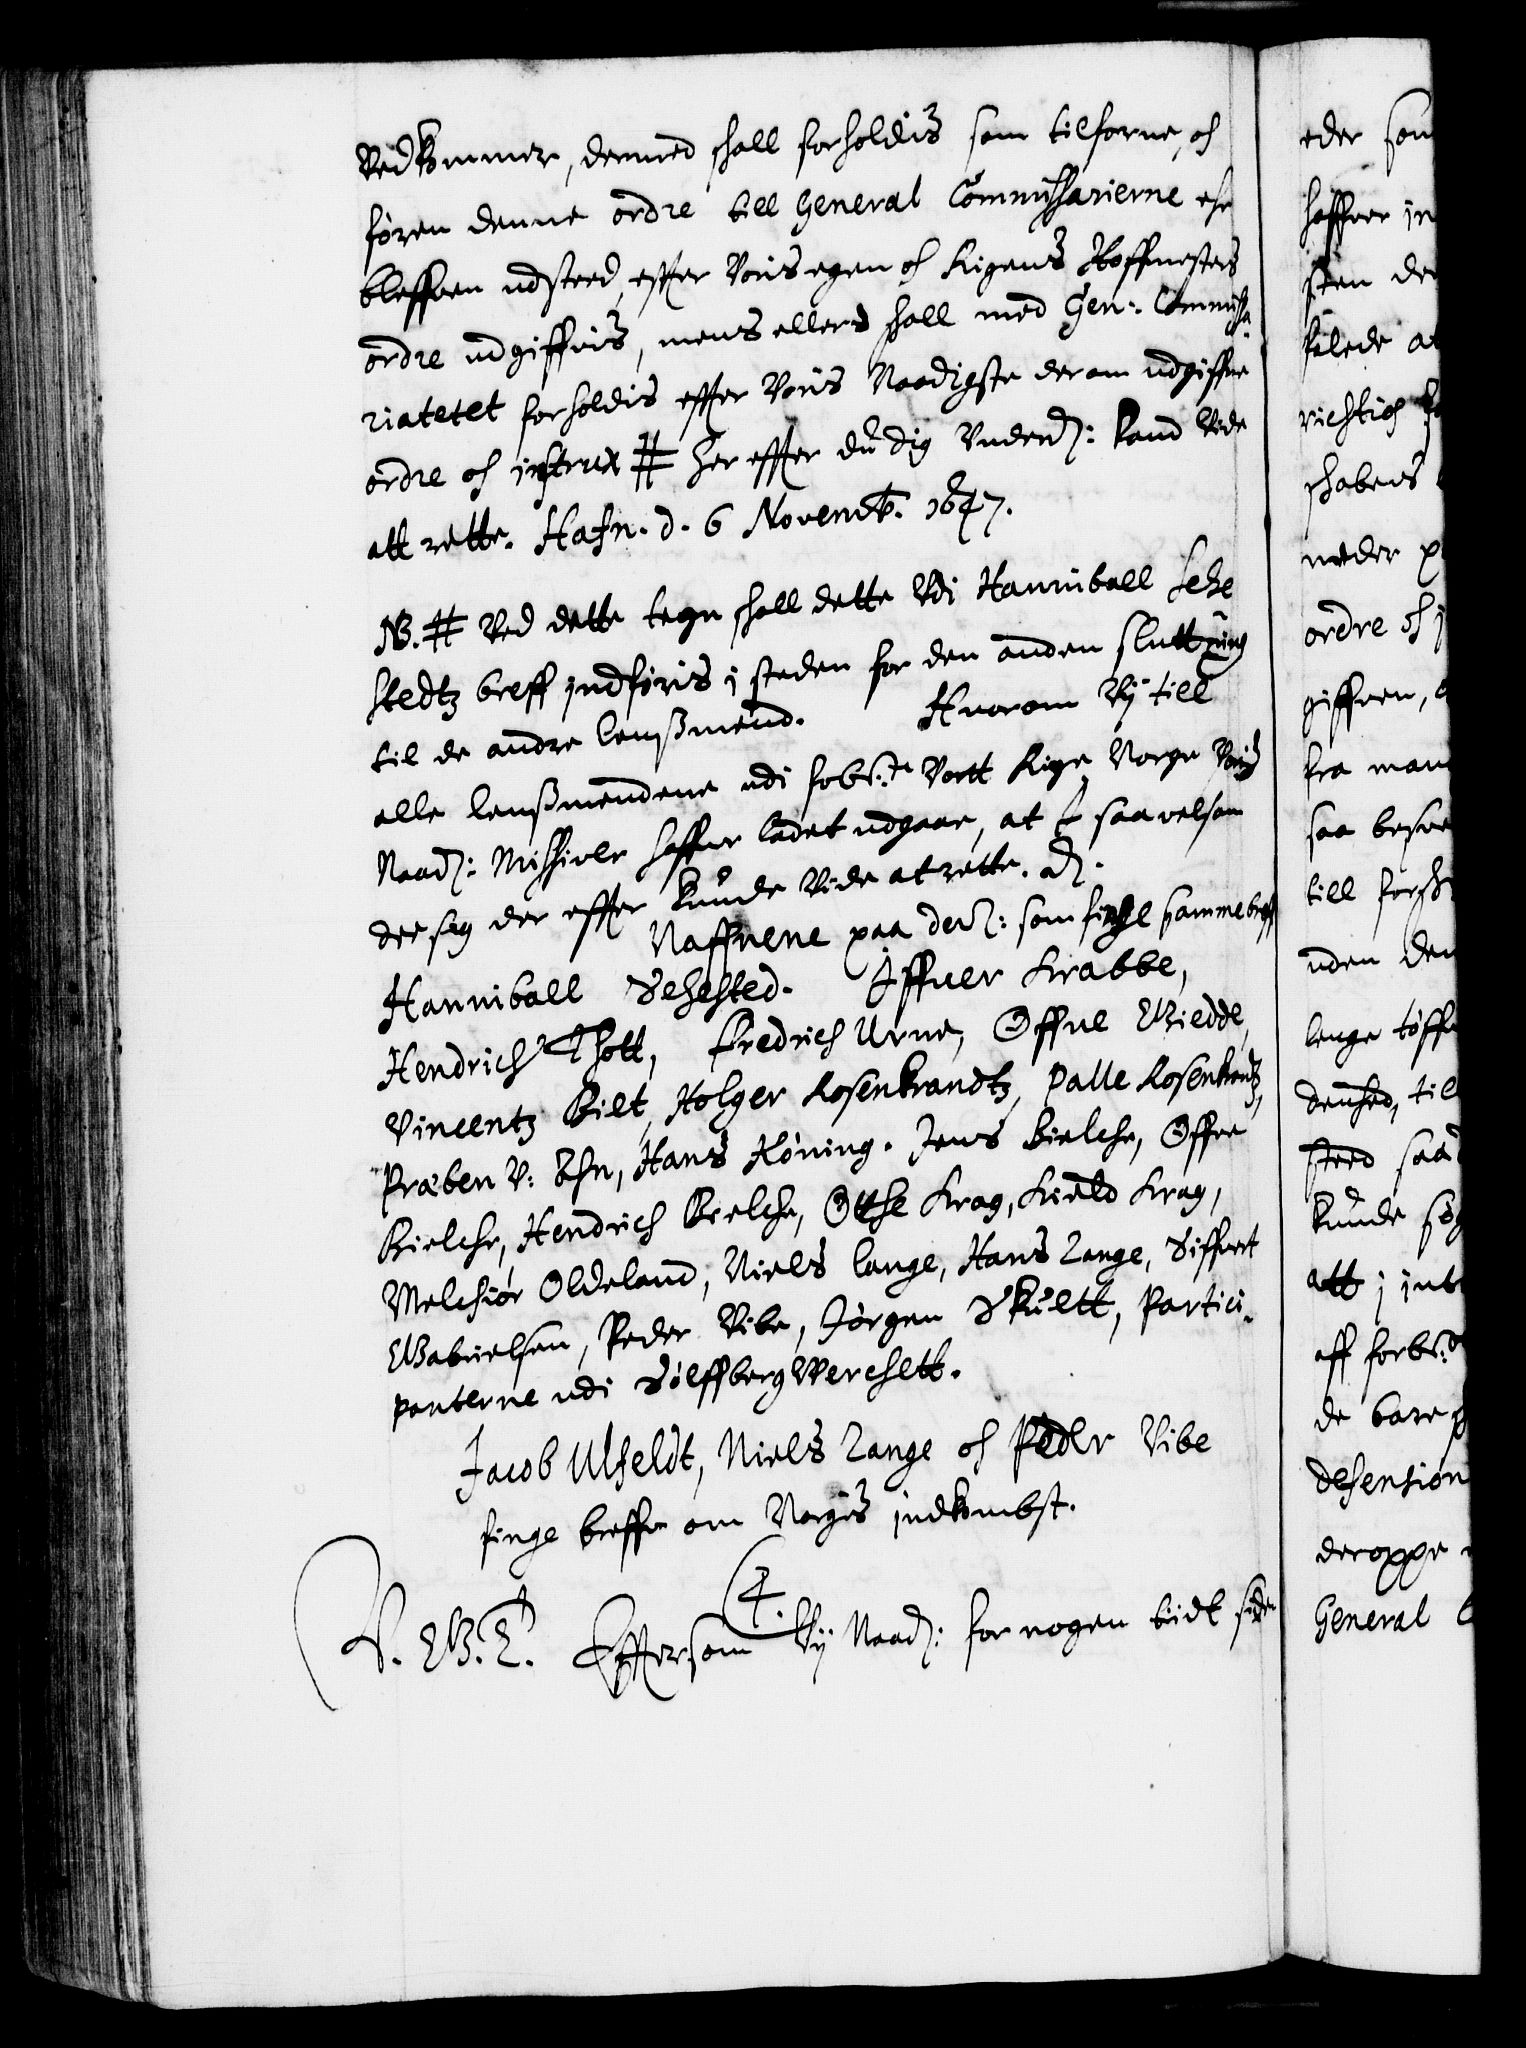 Vedkommer, dermed shall forholdis som tilforne, och
føren denne ordre till General Commissarierne ehr
bleffuen udsteed, effter Voris egen och Rigens Hoffmesters
ordre udgiffuis, mens ellers shall med Gen: Commissa-
riatetet forholdis effter Voris Naadigste derom udgiffne
ordre och instrux # Her effter du dig Underd: kand Vide
att rette. Hafn. d. 6 Novemb. 1647.
NB. # Ved dette tegn shall dette Udi Hanniball Sehe
stedtz breff indføris i steden for den anden sluttning
til de andre lenßmend. Huorom Vij till
alle lenßmendene udi forbe.te Vortt Rige Norge Voris
Naad: Missiver haffuer ladet udgaae, at I saavelsom
de sig der effter kunde Vide at rette. &c.
Naffnene paa dem: som finge samme breff
Hanniball Sehested. Iffuer Krabbe,
Hendrich Thott, Fredrich Urne, Offue Giedde,
Vincentz Bilt, Holger Rosenkrandtz, Palle Rosenkrantz,
Præben V: Ahn, Hans Køning. Jens Bielche, Offue
Bielche, Hendrich Bielche, Otthe Krag, Kield Krag,
Melchiør Oldeland, Niels Lange, Hans Lange, Siffuert
Gabrielsen, Peder Vibe, Jørgen Skult, Partici-
panterne udi Sølffberg Werchett.
Jacob Ulfeldt, Niels Lange och Peder Vibe
finge breffue om Norgis indkombst.
4.
V. G. T. Efftersom Vij Naad: for nogen tiidt siden
eder som
haffuer in
sten der
richtig
shabens
neder p
ordre och i
giffuen,
fra
saa
till
uden den
lenge
till
saa
kunde søg
att i
aff forbe.te
de bare
defension
deroppe
General C